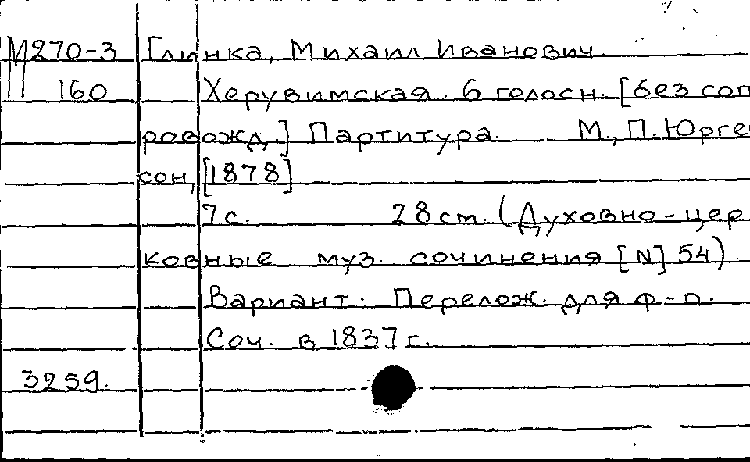 М270-3 Глинка, Михаил Иванович.
160 Херувимская. 6 голосн. [без соп
ровожд.] Партитура. М., П. Юрген
сон, [1878]
7 с. 28 cm. (Духовно-цер
ковные муз. сочинения [N] 54)
Вариант: Перелож. для ф-п.
Соч. в 1837 г.
3259.